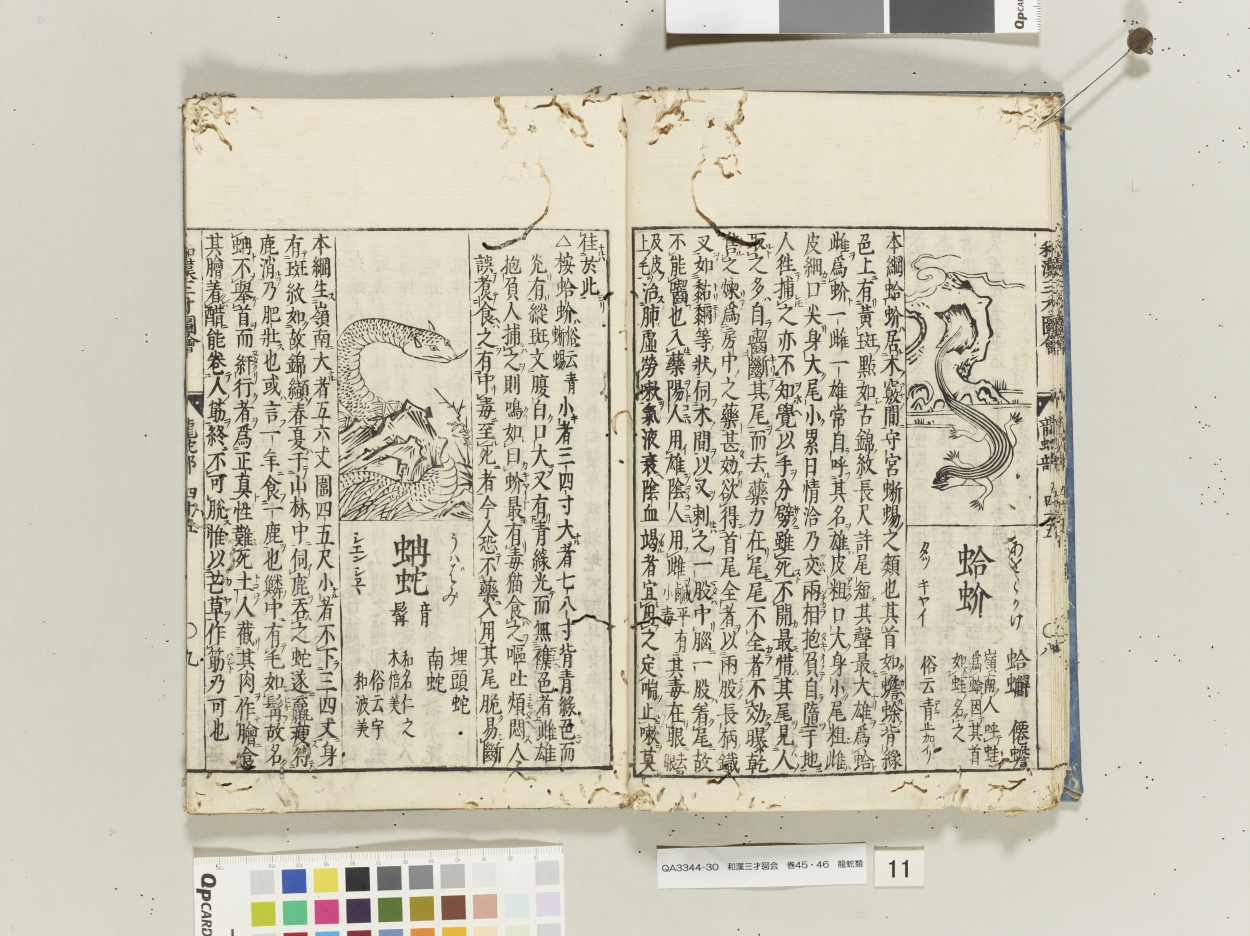 和漢三才圖會
龍蛇部
四十五
蛤蚧
あをとかけ
蛤蟹
僊蟾
嶺南人呼蛙
爲蛤因其首
如蛙名之
俗云青止加介
本綱蛤蚧居木竅間守宮蜥蜴之類也其首如蟾蜍背緑
色上有黃斑點如古錦紋長尺許尾短其聲最大雄爲蛤
雌爲蚧一雌一雄常自呼其名雄皮粗口大身小尾粗雌
皮細口尖身大尾小累日情洽乃交兩相抱負自墮于地
人往捕之亦不知覺以手分劈雖死不開最惜其尾見人
取之多自齧斷其尾而去藥力在尾尾不全者不効曝乾
售之煉爲房中之藥甚効欲得首尾全者以兩股長柄鐵
叉如黏黐等狀伺木間以叉刺之一股中腦一股着尾故
不能齧也入藥陽人用雄陰人用雌 鹹平有小毒 其毒在眼去眼
及皮上毛治肺虛勞嗽氣液衰陰血竭者宜用之定喘止嗽莫
佳於此
△按蛤蚧俗云青蜥蜴小者三四寸大者七八寸背青緑色而
光有縱斑文腹白口大又有青緑光而無襍色者雌雄
抱負人捕之則鳴如曰蚧最有毒猫食之嘔吐煩悶人
誤煮食之有中毒至死者今人恐不藥入用其尾脆易斷
蚺蛇
うハヾみ
音髯
埋頭蛇
南蛇
和名仁之
木倍美
俗云宇
和波美
本綱生嶺南大者五六丈圍四五尺小者不下三四丈身
有斑紋如故錦纈春夏于山林中伺鹿吞之蛇遂羸痩待
鹿消乃肥壯也或言一年食一鹿也鱗中有毛如髯故名
蚺不舉首而斜行者爲正真性難死土人截其肉作膾食
其膾着醋能卷人筯終不可脫惟以芒草作筯乃可也
和漢三才圖會
龍蛇部
四十五
〇九
QA3344-30 和漢三才図会 巻45・46 龍蛇類
11
QpCARD
QpCARD